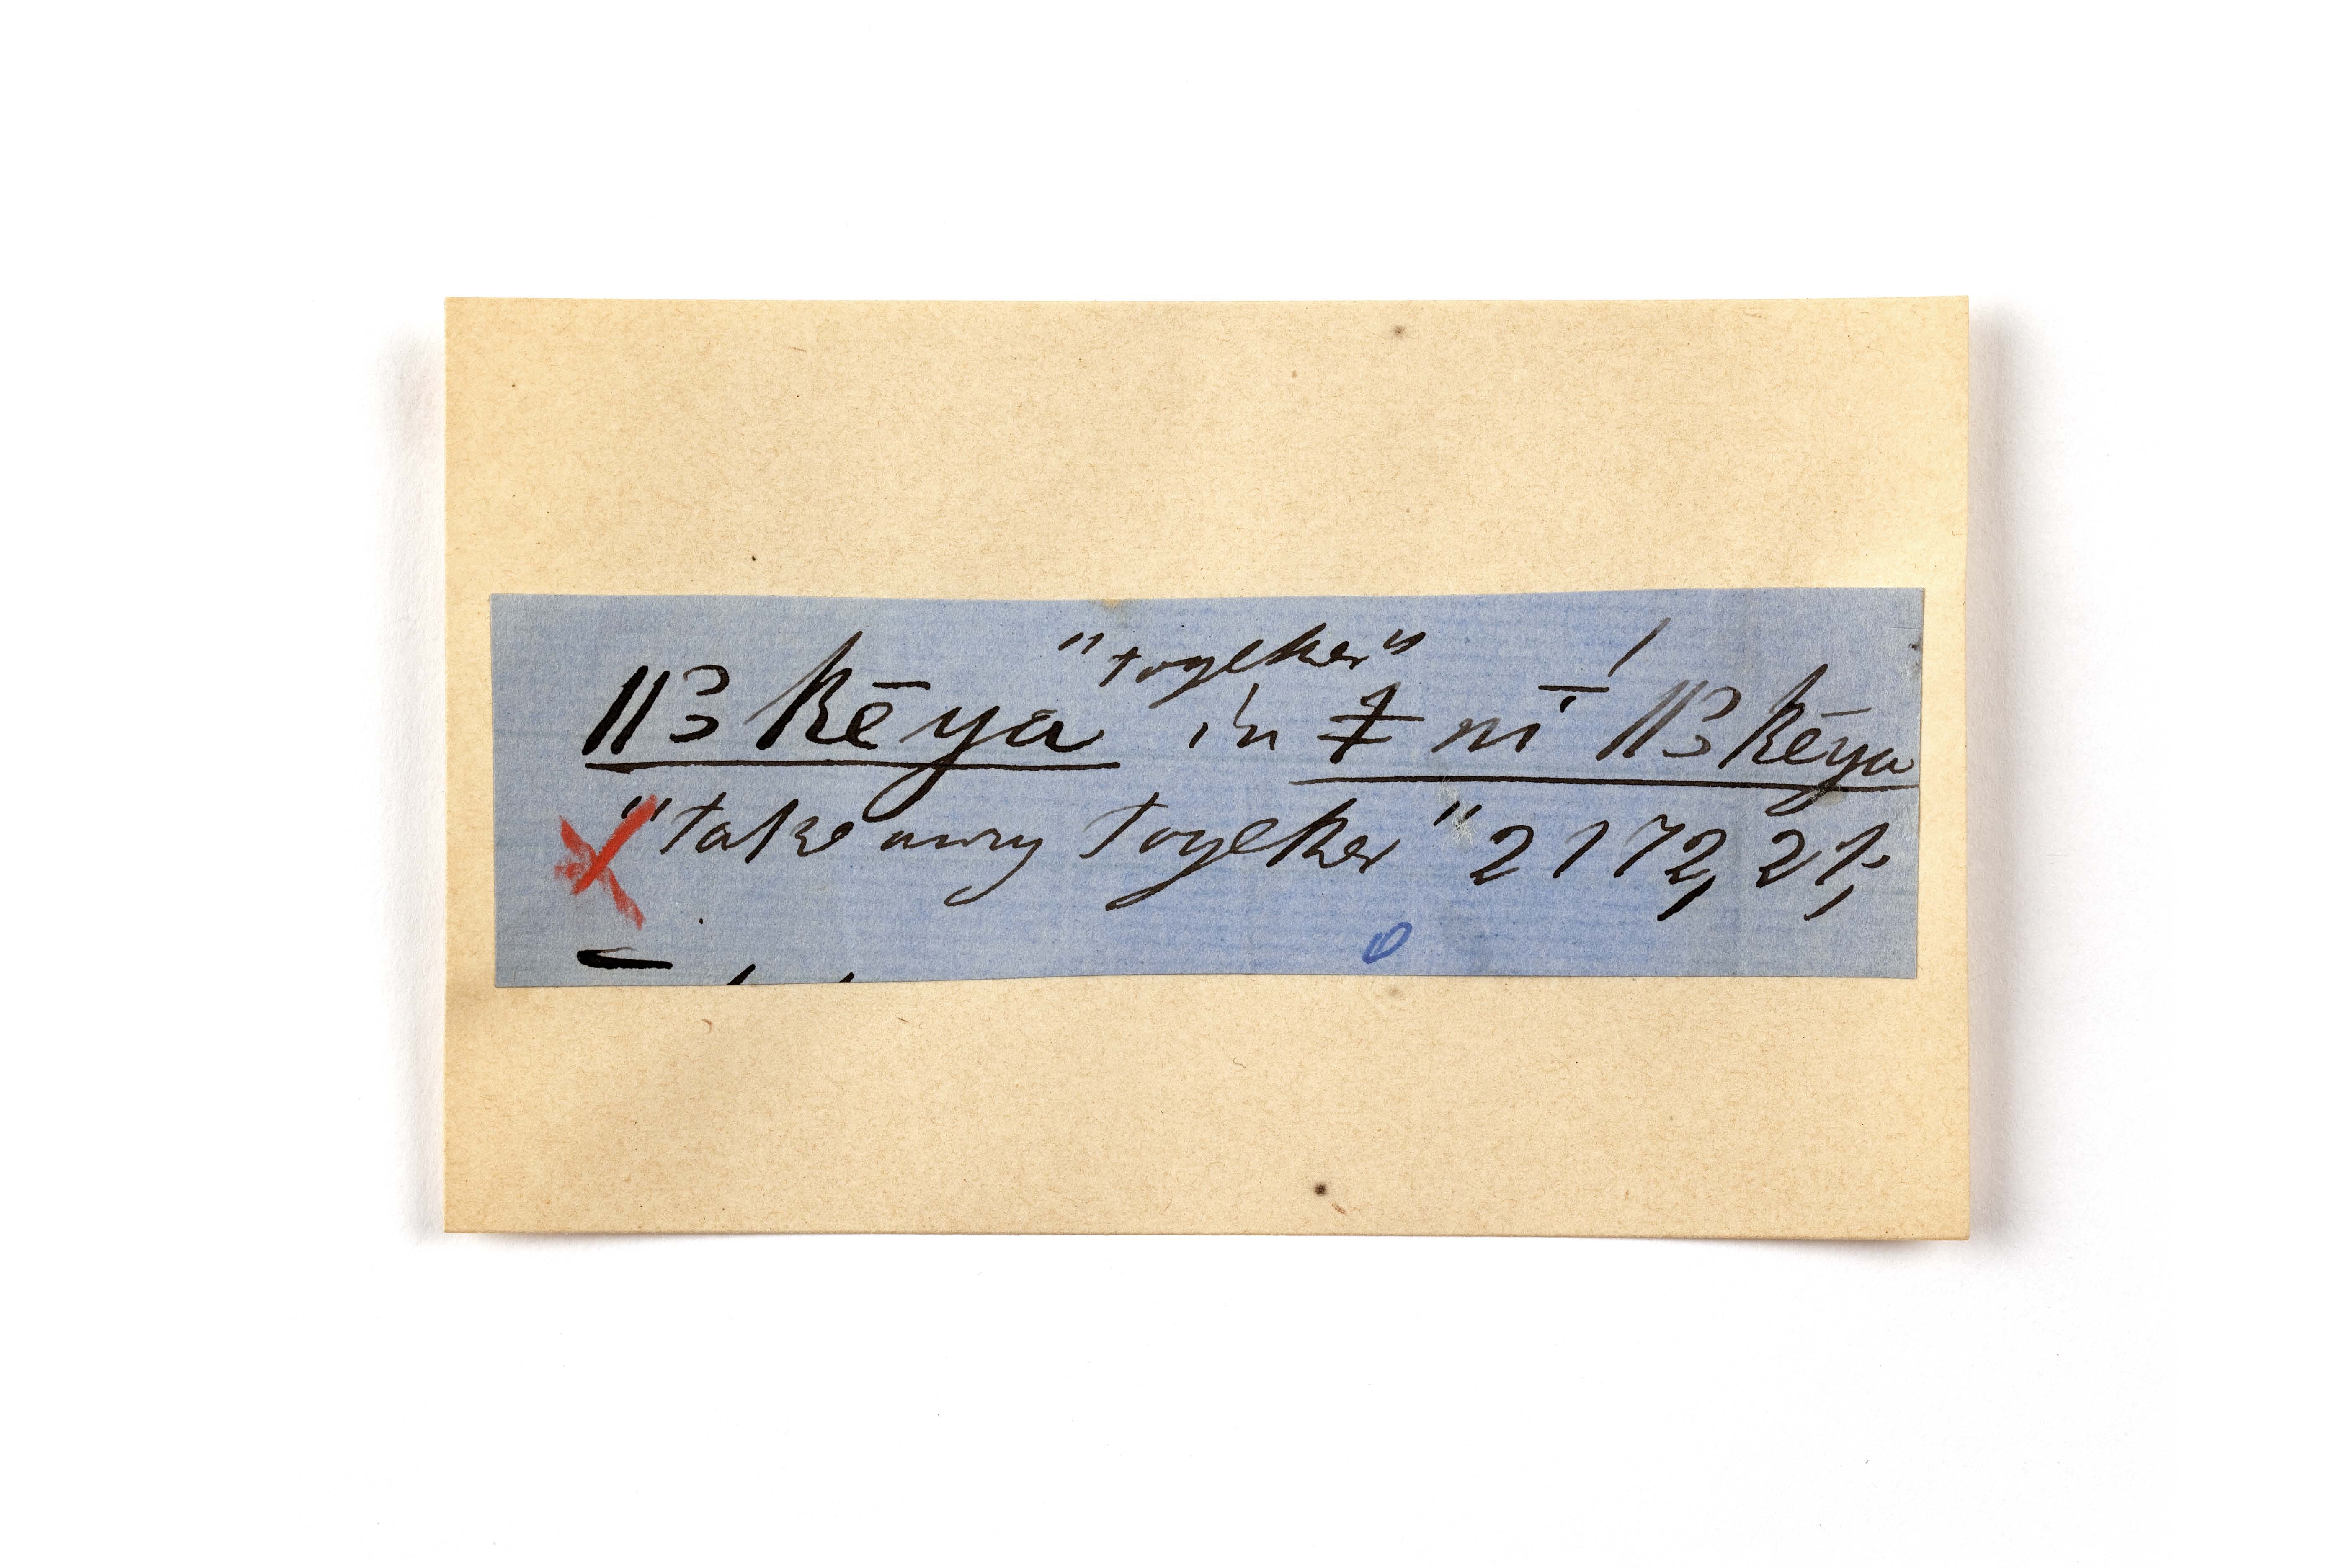 "together"
ǁ3 kēya in ǂ nī́ ǁ3 kēya
"take away together" 2172, 21;